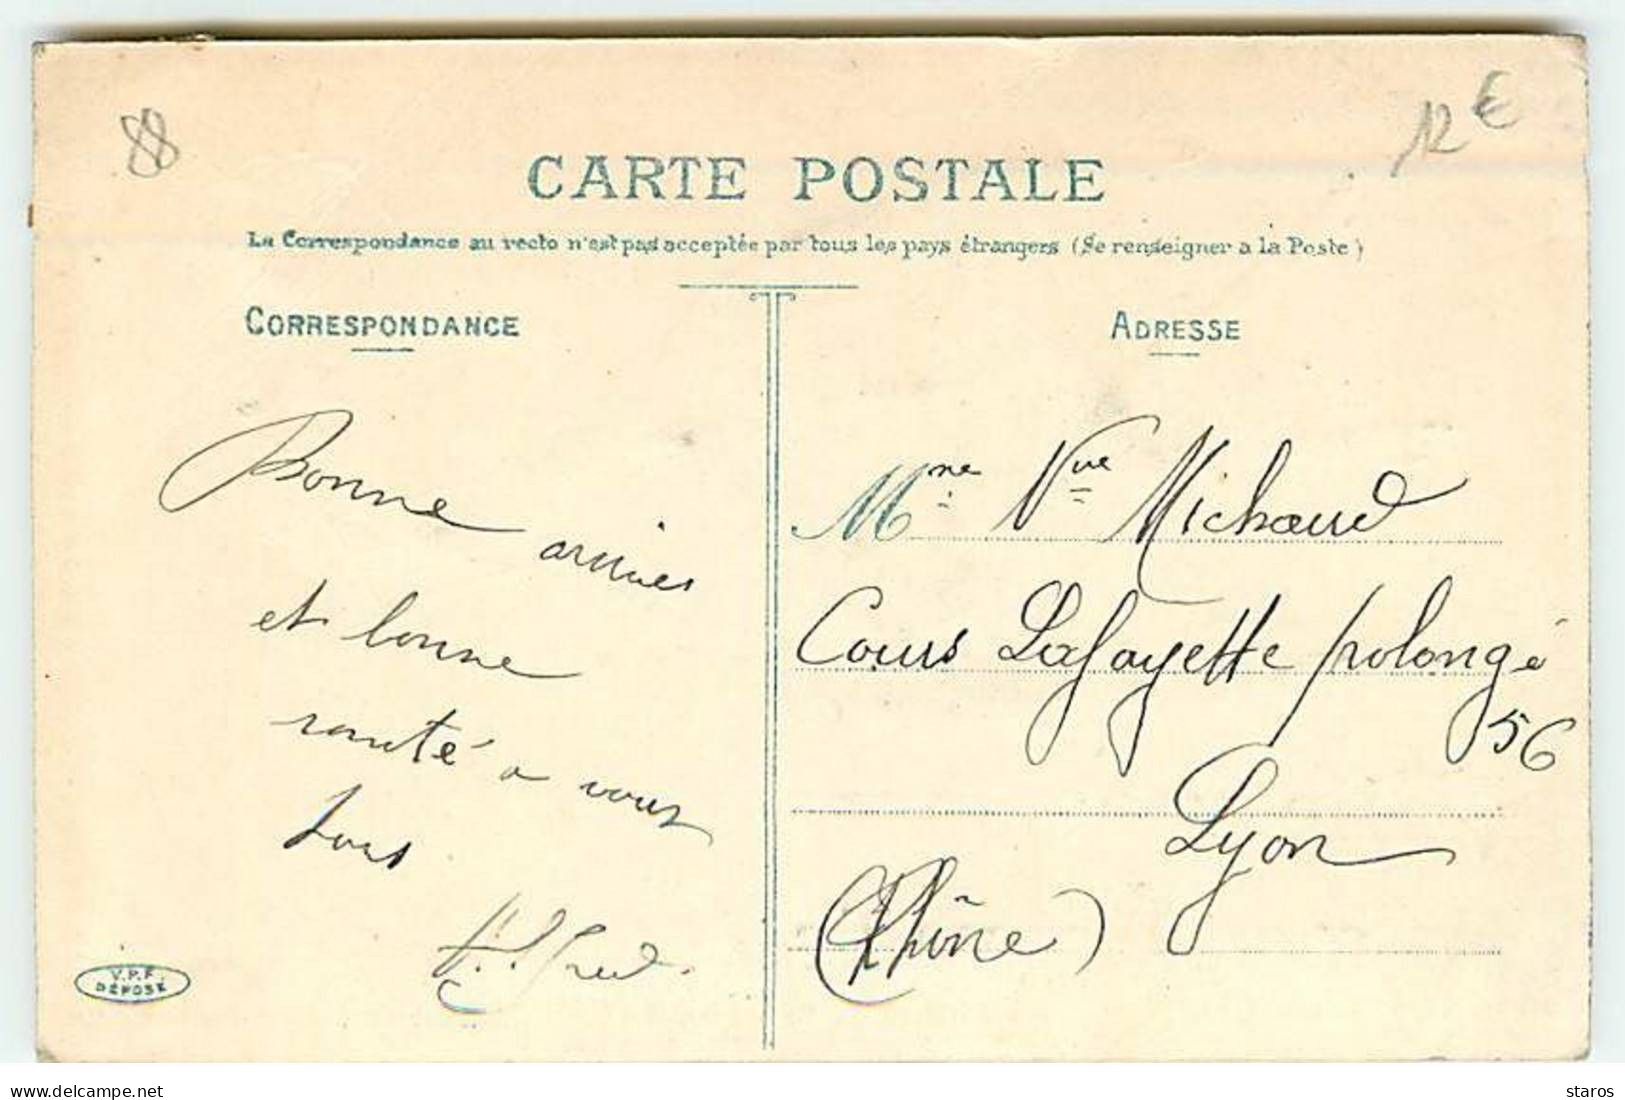 88
12 €
CARTE POSTALE
La Correspondance au recto n'est pas acceptée par tous les pays étrangers (Se renseigner a la Poste)
CORRESPONDANCE
Bonne
année
et bonne
santé a vous
tous
V.P.F.
DÉPOSÉ
ADRESSE
Mme Vve Michaud
Cours Lafayette prolongé
56
Lyon
(Rhône)
www.delcampe.net
staros